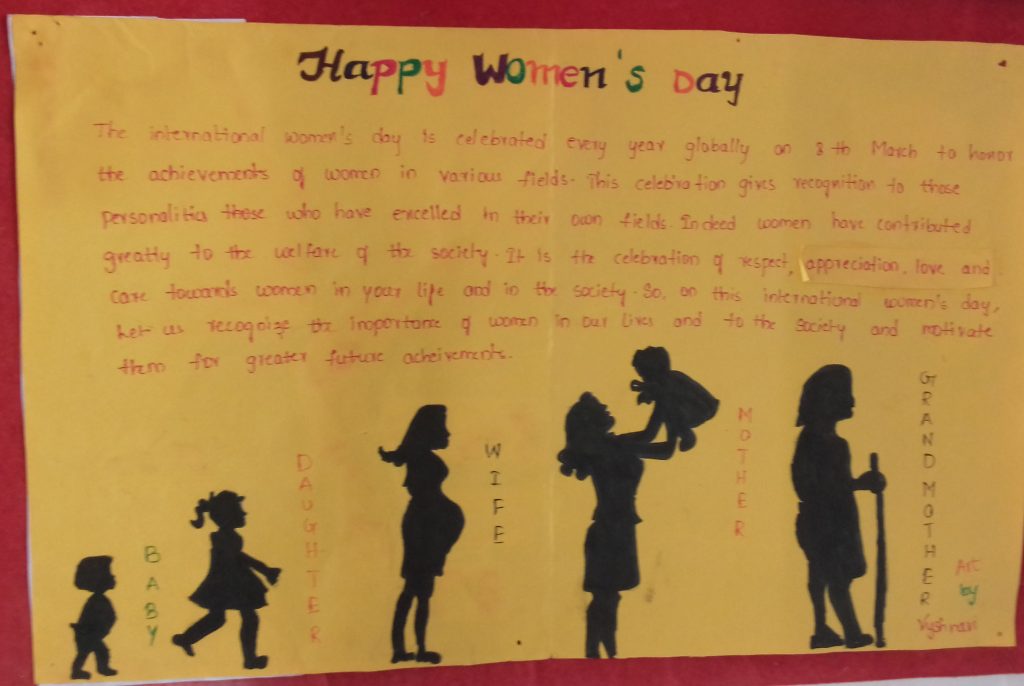 Happy Women's Day
The international women's day is celebrated every year globally on 8th March to honor
the achievements of women in various fields. This celebration gives recognition to those
personalities those who have excelled in their own fields. Indeed women have contributed
greatly to the welfare of the society. It is the celebration of respect, appreciation, love and
care towards women in your life and in the society. So, on this international women's day,
Let us recognize the importance of women in our lives and to the society and motivate
them for greater future acheivements.
BABY
DAUGHTER
WIFE
MOTHER
GRANDMOTHER
Art
by
Vyshnavi